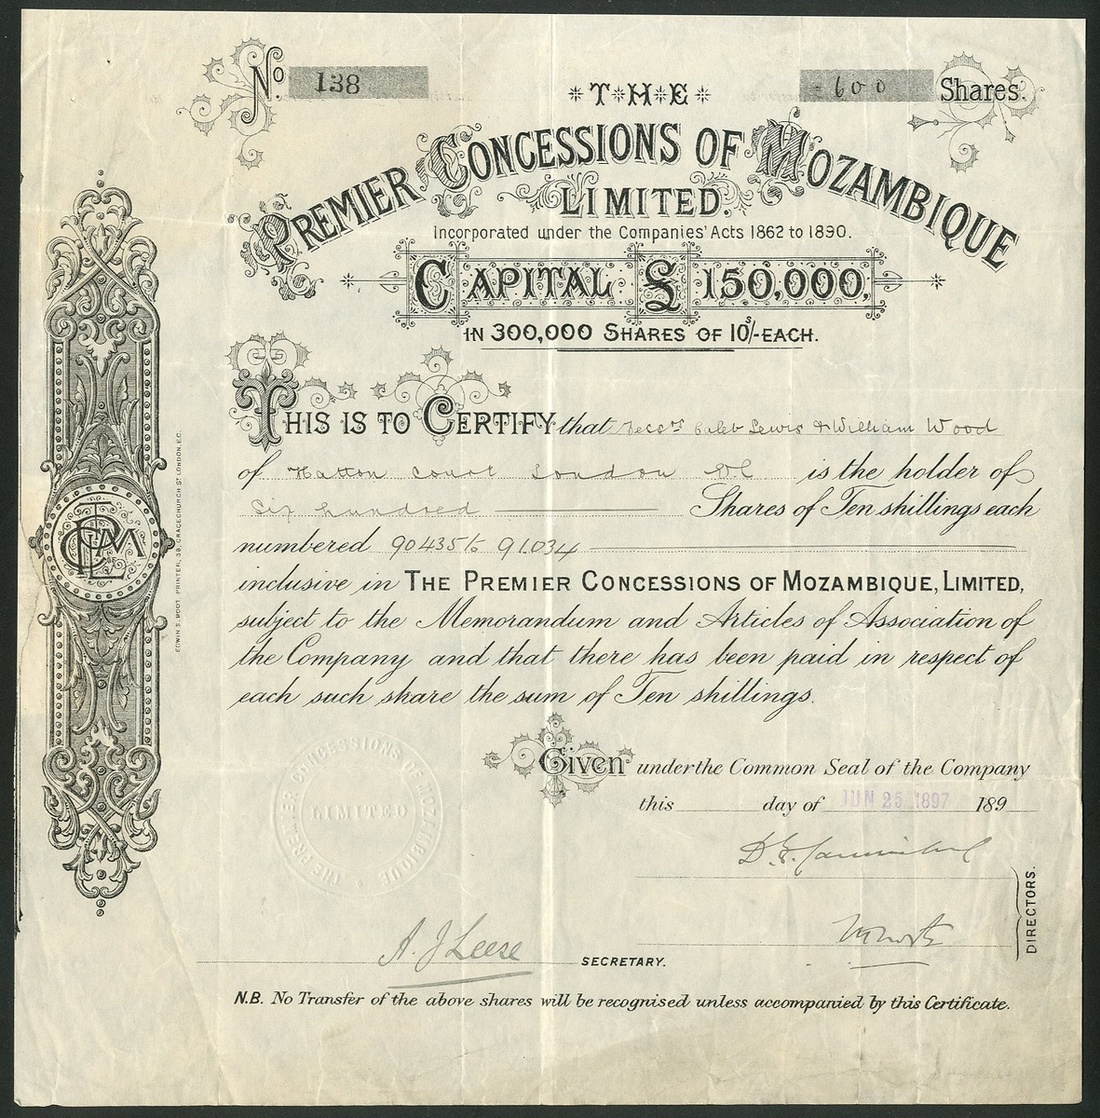 No. 138
- 600 Shares.
THE
PREMIER CONCESSIONS OF MOZAMBIQUE
LIMITED.
Incorporated under the Companies' Acts 1862 to 1890.
CAPITAL £150,000,
IN 300,000 SHARES OF 10s/- EACH.
THIS IS TO CERTIFY that Caleb Lewis & William Wood
of Hatton Court London is the holder of
Six hundred Shares of Ten shillings each
numbered 90435 to 91034
inclusive in THE PREMIER CONCESSIONS OF MOZAMBIQUE, LIMITED,
subject to the Memorandum and Articles of Association of
the Company and that there has been paid in respect of
each such share the sum of Ten shillings.
Given under the Common Seal of the Company
this day of JUN 25 1897 189
THE PREMIER CONCESSIONS OF MOZAMBIQUE
LIMITED
DIRECTORS.
A. J Leese SECRETARY.
N.B. No Transfer of the above shares will be recognised unless accompanied by this Certificate.
EDWIN S. BOOT, PRINTER, 38, GRACECHURCH ST LONDON, E.C.